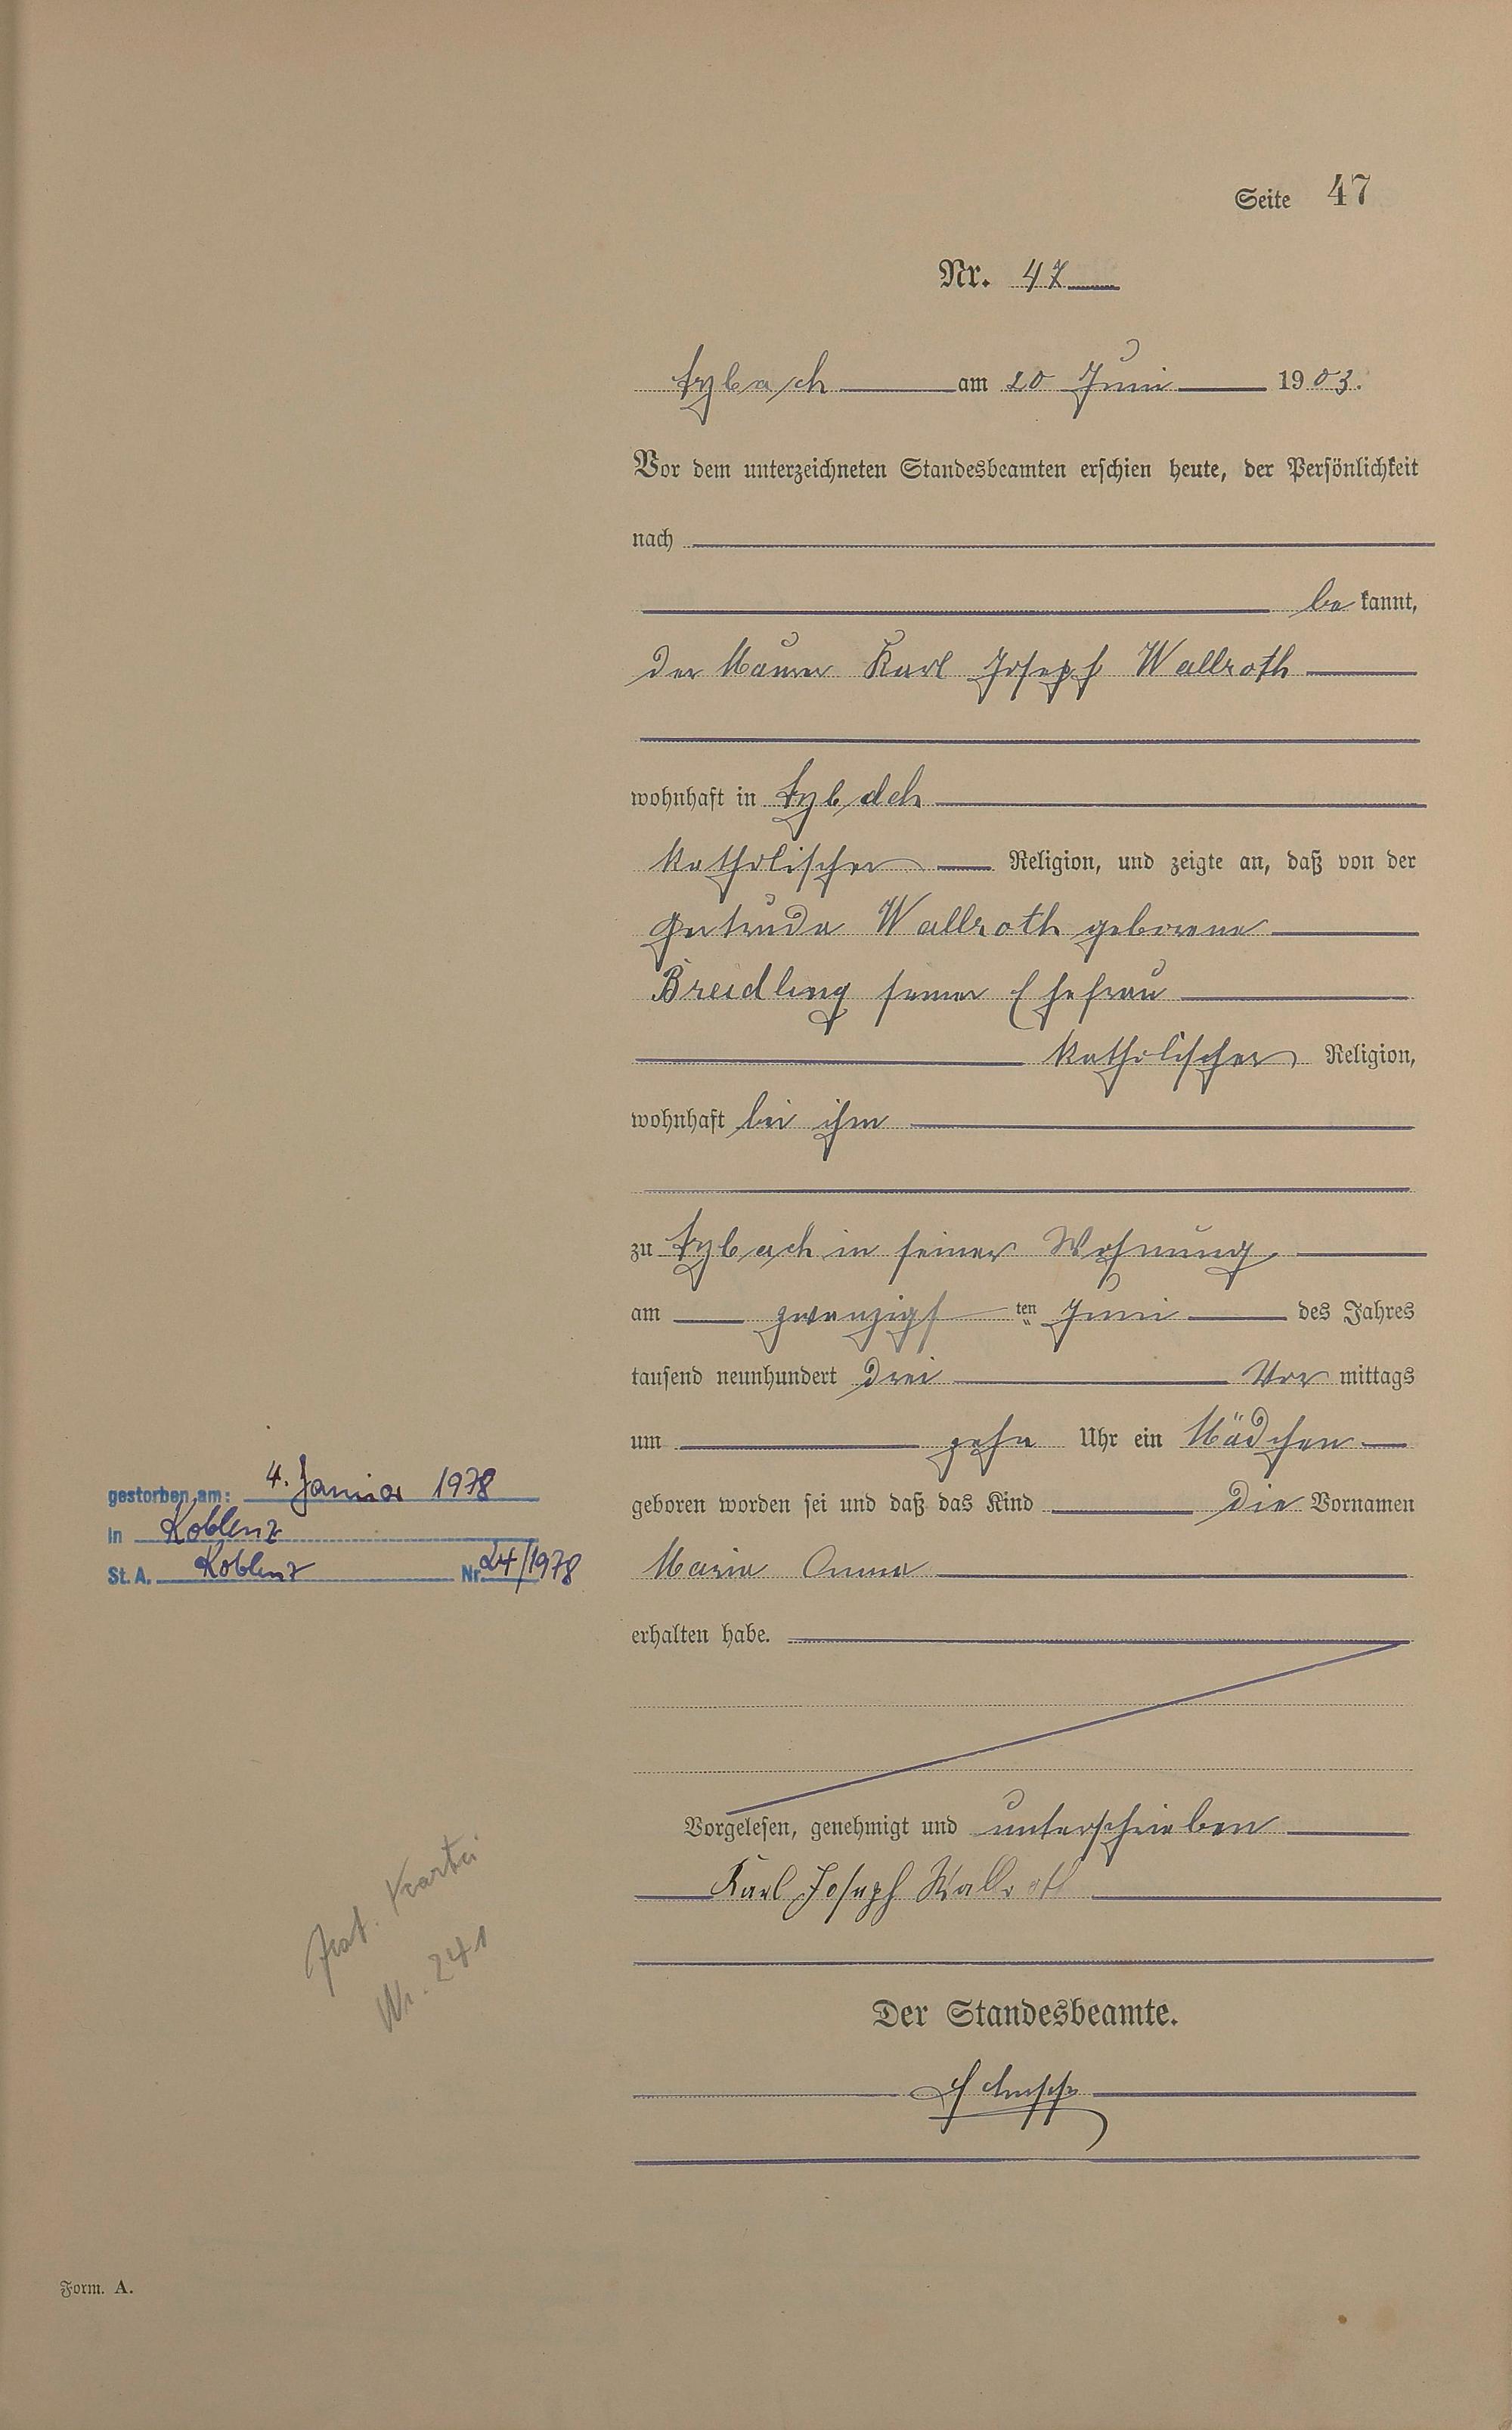 Seite 47
Nr. 47
Arzbach am 20 Juni 1903.
Vor dem unterzeichneten Standesbeamten erschien heute, der Persönlichkeit
nach
be kannt,
der Maurer Karl Joseph Wallroth
wohnhaft in
katholischer Religion, und zeigte an, daß von der
Gertruda Wallroth geborene
Breidling seiner Ehefrau
katholischer Religion,
wohnhaft bei ihm
zu Arzbach in seiner Wohnung
am zwanzigsten Juni des Jahres
tausend neunhundert drei Vor mittags
um zehn Uhr ein Mädchen
geboren worden sei und daß das Kind die Vornamen
gestorben am: 4. Januar 1978
in Koblenz
St. A. Koblenz Nr. 24/1978
Maria Anna
erhalten habe.
Vorgelesen, genehmigt und unterschrieben
Karl Joseph Wallroth
Kartei
Nr. 241
Der Standesbeamte.
Form. A.